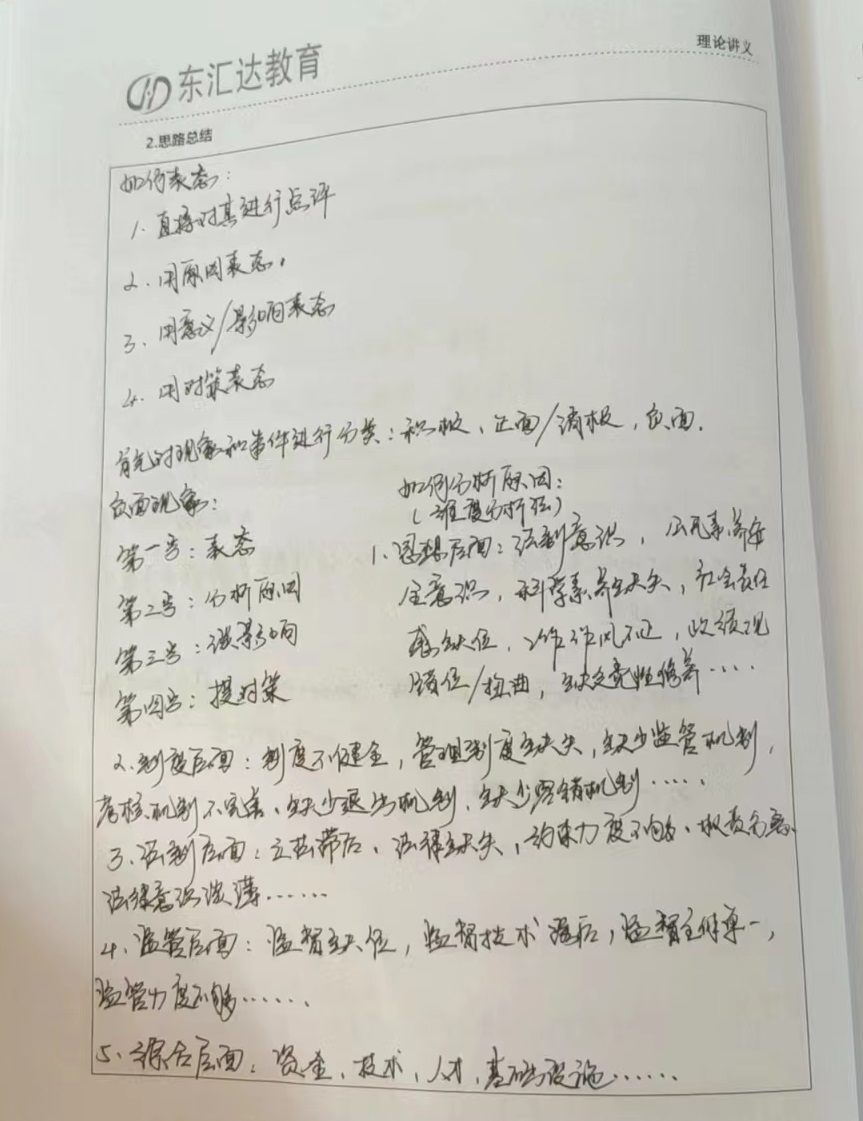 东汇达教育
理论讲义
2.思路总结
如何表态：
1. 直接对其进行点评
2. 用原因表态。
3. 用意义/影响表态
4. 用对策表态
首先对现象和事件进行分类：积极、正面/消极，负面.
负面现象：
第一步：表态
第二步：分析原因
第三步：谈影响
第四步：提对策
如何分析原因：
（维度分析法）
1. 思想层面：法制意识，公民素养安
全意识，科学素养缺失，社会责任
感缺位，工作作风不正，政绩观
错位/扭曲，缺乏党性修养····
2. 制度层面：制度不健全，管理制度缺失，缺少监管机制，
考核机制不完善、缺少退出机制、缺少容错机制·····
3. 法制层面：立法滞后、法律缺失，约束力度不够、权责
法律意识淡薄······
4. 监管层面：监督缺位，监督技术落后，监督主体单一，
监管力度不够······
5. 综合层面：资金、技术、人才、基础设施······